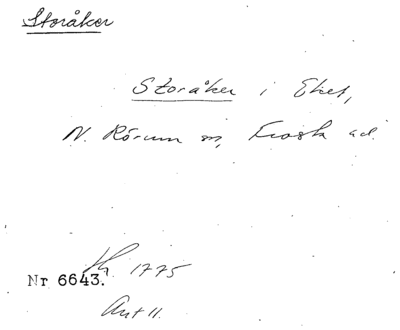 Storåker
Storåker i Eket,
N. Rörum sn, Frosta hd.
Nr 6643. 1775
Avt 11.